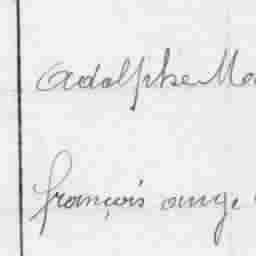 Adolphe
françois ange